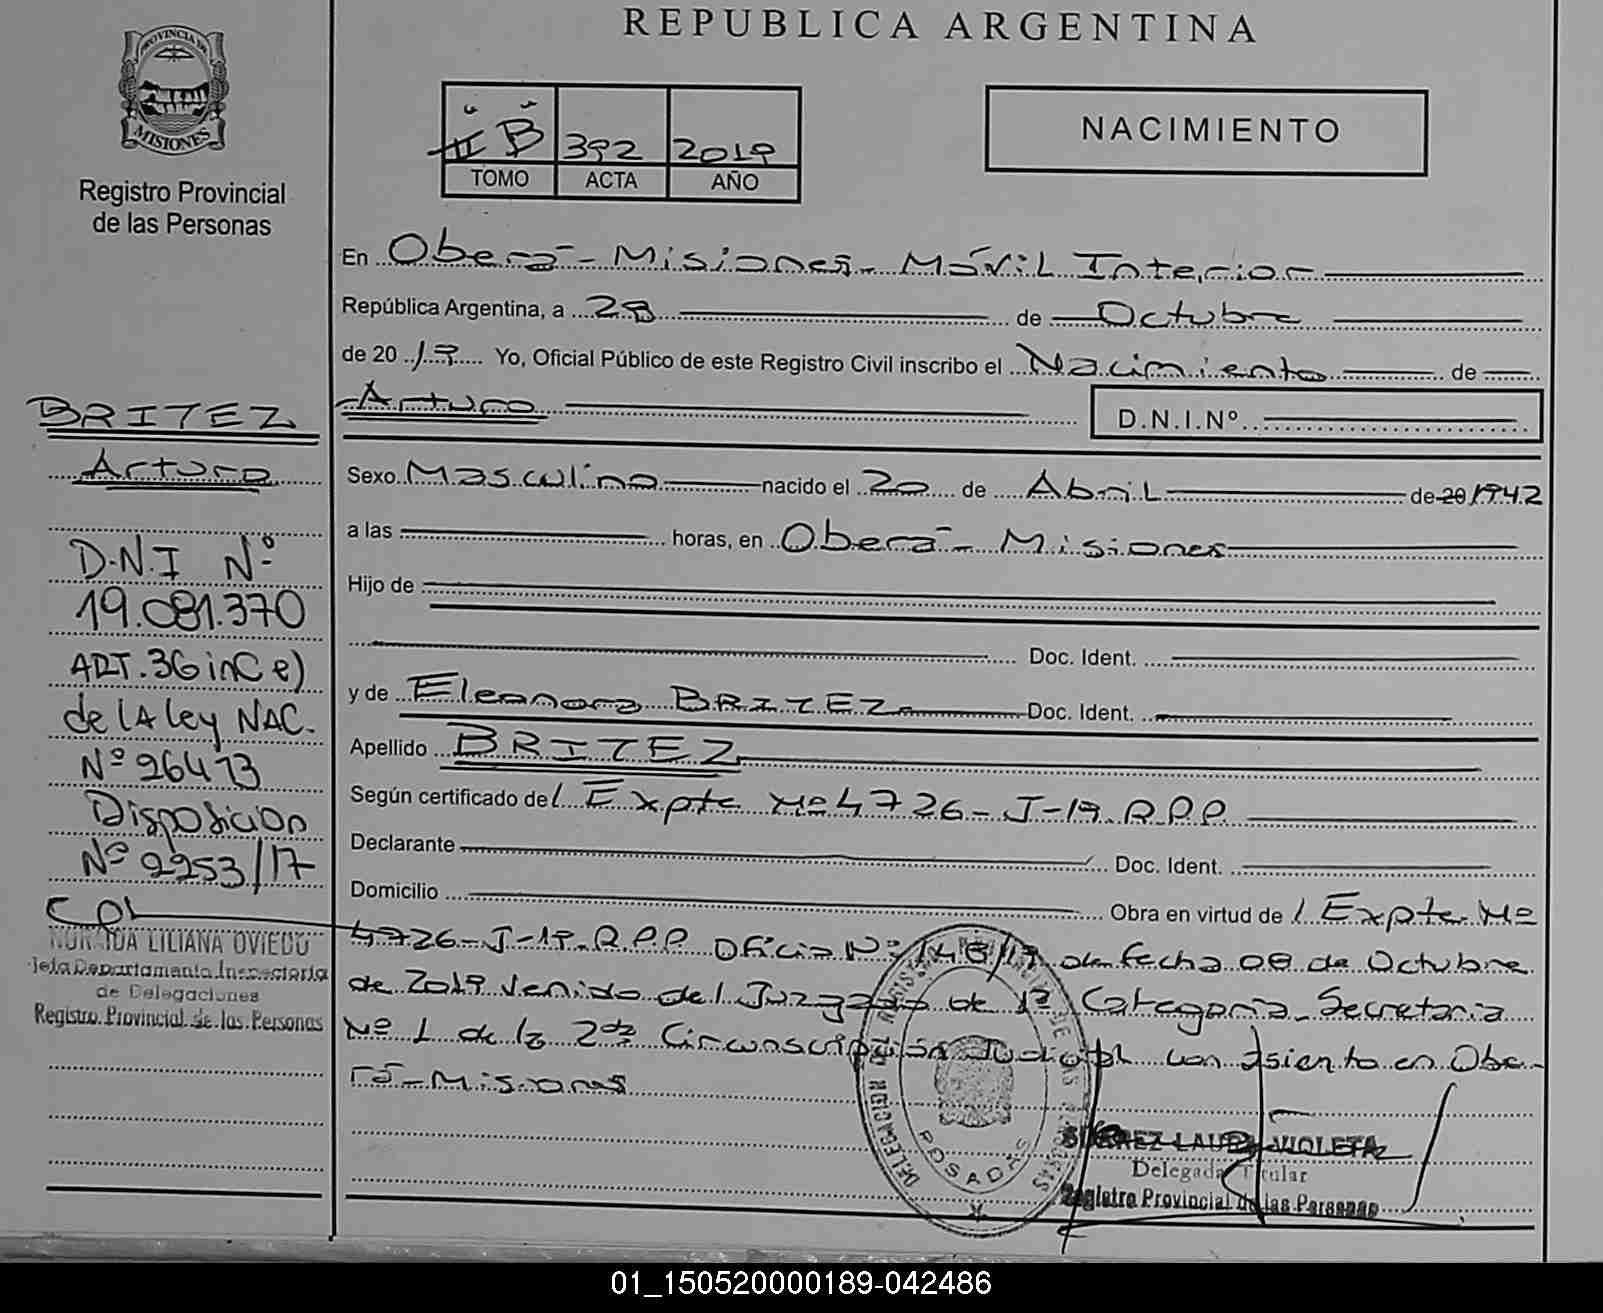 REPUBLICA ARGENTINA
PROVINCIA DE
MISIONES
Registro Provincial
de las Personas
II B 392 2019
TOMO ACTA AÑO
NACIMIENTO
En Oberá - Misiones - Móvil Interior
República Argentina, a 28 de Octubre
de 20 19 Yo, Oficial Público de este Registro Civil inscribo el Nacimiento de
Arturo D.N.I.Nº
Sexo Masculino nacido el 20 de Abril de 20 1942
a las horas, en Oberá - Misiones
Hijo de
Doc. Ident.
y de Eleonora BRITEZ Doc. Ident.
Apellido BRITEZ
Según certificado del Expte Nº 4726-J-19. R.P.P.
Declarante Doc. Ident.
Domicilio Obra en virtud de l Expte. Nº
4726-J-19. R.P.P. Oficio Nº 148/19 de fecha 08 de Octubre
de 2019 venido del Juzgado de 1ª Categoría - Secretaria
Nº 1 de la 2da Circunscripción Judicial con asiento en Obe-
rá - Misiones
BRITEZ
Arturo
D.N.I Nº
19.081.370
ART. 36 inC e)
de lA ley NAC.
Nº 26413
Disposicion
Nº 2253/17
LILIANA OVIEDO
Jefa Departamento Inspectoria
de Delegaciones
Registro Provincial de las Personas
POSADAS
LAURA VIOLETA
Delegada Titular
Registro Provincial de las Personas
01_150520000189-042486